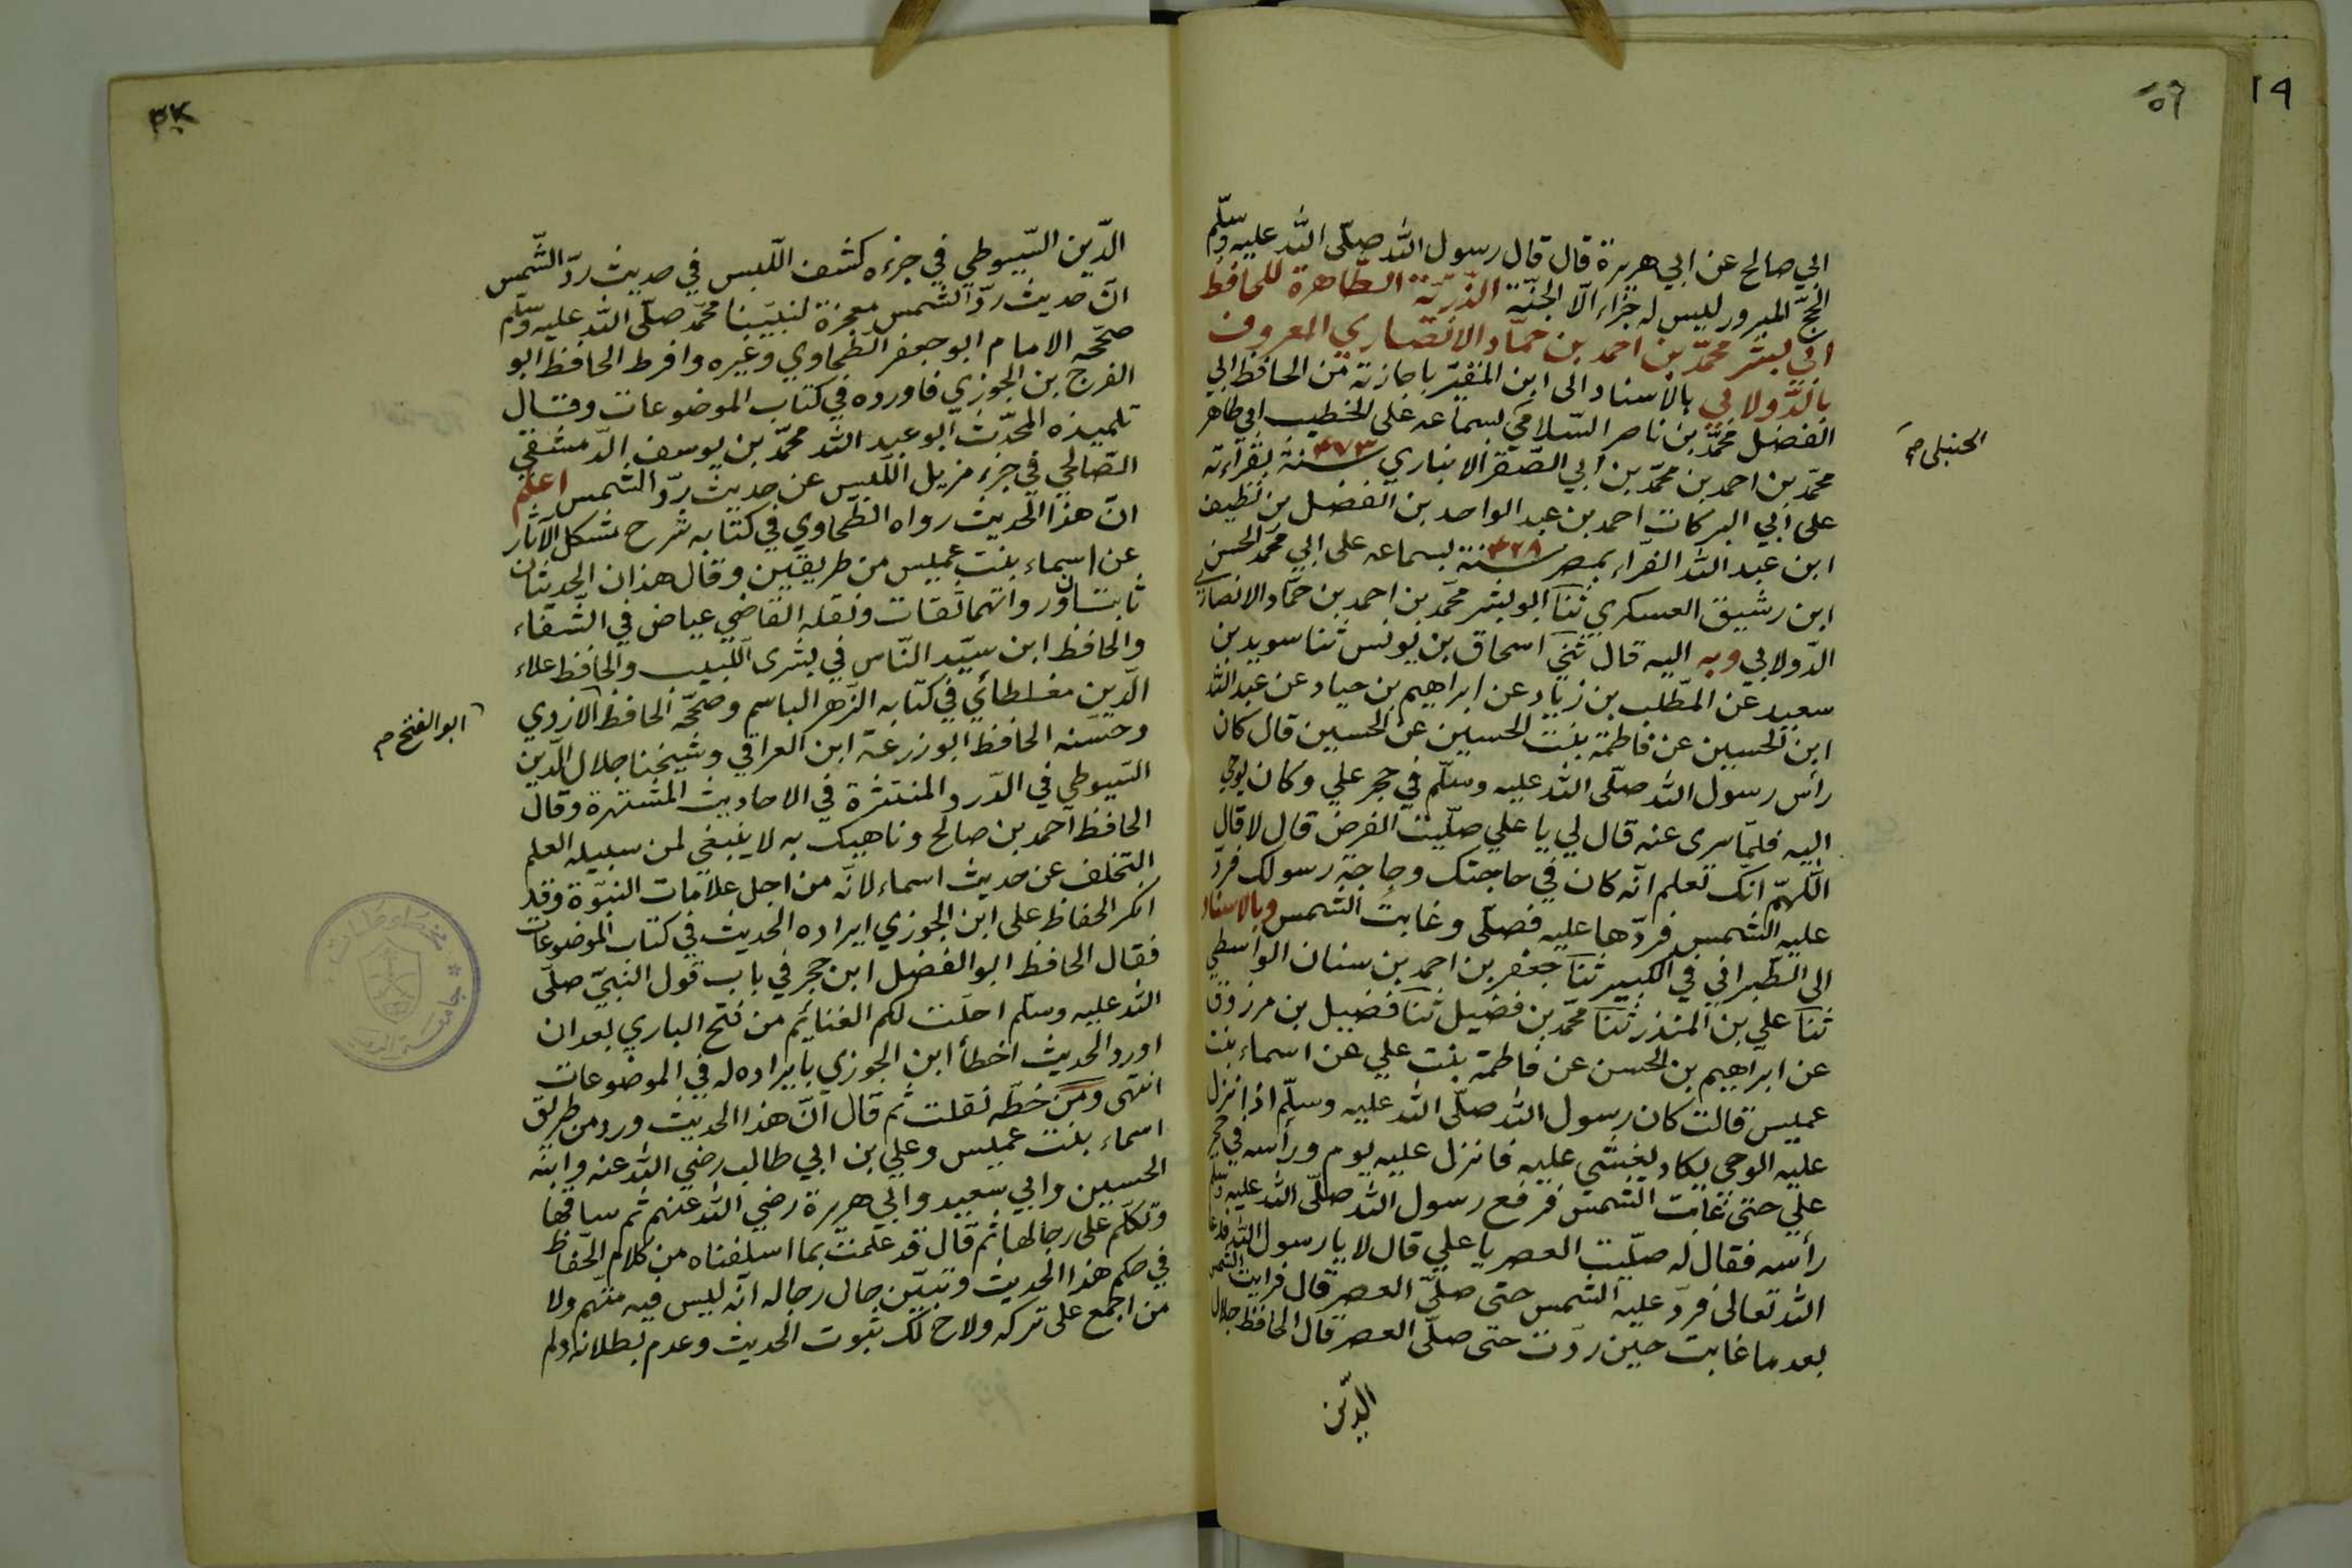 ابي صالح عن ابي هريرة قال قال رسول الله صلّى الله عليه وسلّم
الحجّ المبرور ليس له جزاء الّا الجنّة الذّرّيّة الطّاهرة للحافظ
ابي بشر محمّد بن احمد بن حمّاد الانصاري المعروف
بالدّولابي بالاسناد الى ابن المقيّر باجازته من الحافظ ابي
الفضل محمّد بن ناصر السّلامي بسماعه على الخطيب ابي طاهر
الحنبلي صح
محمّد بن احمد بن محمّد بن ابي الصّقر الانباري سنة ٤٧٣ بقراءته
على ابي البركات احمد بن عبد الواحد بن الفضل بن نظيف
ابن عبد الله الفرّاء بمصر سنة ٤٢٨ بسماعه على ابي محمّد الحسن
ابن رشيق العسكري ثنا ابو بشر محمّد بن احمد بن حمّاد الانصاري
الدّولابي وبه اليه قال ثني اسحاق بن يونس ثنا سويد بن
سعيد عن المطّلب بن زياد عن ابراهيم بن حياد عن عبد الله
ابن الحسين عن فاطمة بنت الحسين عن الحسين قال كان
رأس رسول الله صلّى الله عليه وسلّم في حجر علي وكان يوحى
اليه فلمّا سري عنه قال لي يا علي صلّيت الفرض قال لا قال
اللّهمّ انّك تعلم انّه كان في حاجتك وحاجة رسولك فردّ
عليه الشمس فردّها عليه فصلّى وغابت الشمس وبالاسناد
الى الطّبراني في الكبير ثنا جعفر بن احمد بن سنان الواسطي
ثنا علي بن المنذر ثنا محمّد بن فضيل ثنا فضيل بن مرزوق
عن ابراهيم بن الحسن عن فاطمة بنت علي عن اسماء بنت
عميس قالت كان رسول الله صلّى الله عليه وسلّم اذا نزل
عليه الوحي يكاد يغشي عليه فانزل عليه يوم ورأسه في حجر
علي حتى غابت الشمس فرفع رسول الله صلّى الله عليه وسلم
رأسه فقال له صلّيت العصر يا علي قال لا يا رسول الله فدعا
الله تعالى فردّ عليه الشمس حتى صلّى العصر قال فرايت الشمس
بعد ما غابت حين ردّت حتى صلّى العصر قال الحافظ جلال
الدّين
الدّين السّيوطي في جزءه كشف اللّبس في حديث ردّ الشّمس
انّ حديث ردّ الشمس معجزة لنبيّنا محمّد صلّى الله عليه وسلّم
صحّحه الامام ابو جعفر الطّحاوي وغيره وافرط الحافظ ابو
الفرج بن الجوزي فاورده في كتاب الموضوعات وقال
تلميذه المحدّث ابو عبد الله محمّد بن يوسف الدّمشقي
الصّالحي في جزء مزيل اللّبس عن حديث ردّ الشمس اعلم
انّ هذا الحديث رواه الطّحاوي في كتابه شرح مشكل الآثار
عن اسماء بنت عميس من طريقين وقال هذان الحديثان
ثابتان ورواتهما ثقات ونقله القاضي عياض في الشّفاء
والحافظ ابن سيّد النّاس في بشرى اللّبيب والحافظ علاء
الدّين مغلطائي في كتابه الزّهر الباسم وصحّحه الحافظ الازدي
ابو الفتح صح
وحسّنه الحافظ ابو زرعة ابن العراقي وشيخنا جلال الدّين
السّيوطي في الدّرر المنتثرة في الاحاديث المشتهرة وقال
الحافظ احمد بن صالح وناهيك به لا ينبغي لمن سبيله العلم
التخلف عن حديث اسماء لانّه من اجل علامات النبوّة وقد
انكر الحفاظ على ابن الجوزي ايراده الحديث في كتاب الموضوعات
فقال الحافظ ابو الفضل ابن حجر في باب قول النبيّ صلّى
الله عليه وسلّم احلّت لكم الغنائم من فتح الباري بعد ان
اورد الحديث اخطأ ابن الجوزي بايراده له في الموضوعات
انتهى ومن خطّه نقلت ثم قال انّ هذا الحديث ورد من طريق
اسماء بنت عميس وعلي بن ابي طالب رضي الله عنه وابنه
الحسين وابي سعيد وابي هريرة رضي الله عنهم ثم ساقها
وتكلّم على رجالها ثم قال قد علمت بما اسلفناه من كلام الحفّاظ
في حكم هذا الحديث وتبيّن حال رجاله انّه ليس فيه متّهم ولا
من اجمع على تركه ولاح لك ثبوت الحديث وعدم بطلانه ولم